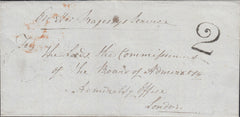 On Her Majestys Service
2
The Lords the Commissioners
of the Board of Admiralty
Admiralty Office
London